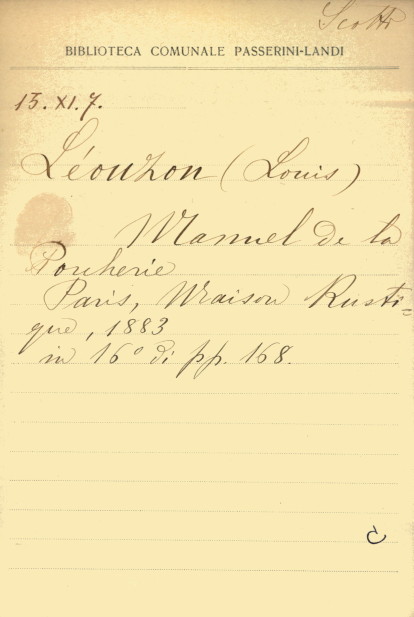 Scotti
BIBLIOTECA COMUNALE PASSERINI-LANDI
15. XI. 7.
Léouzon (Louis)
Manuel de la
Porcherie
Paris, Maison Rusti=
que, 1883
in 16° di pp. 168.
C